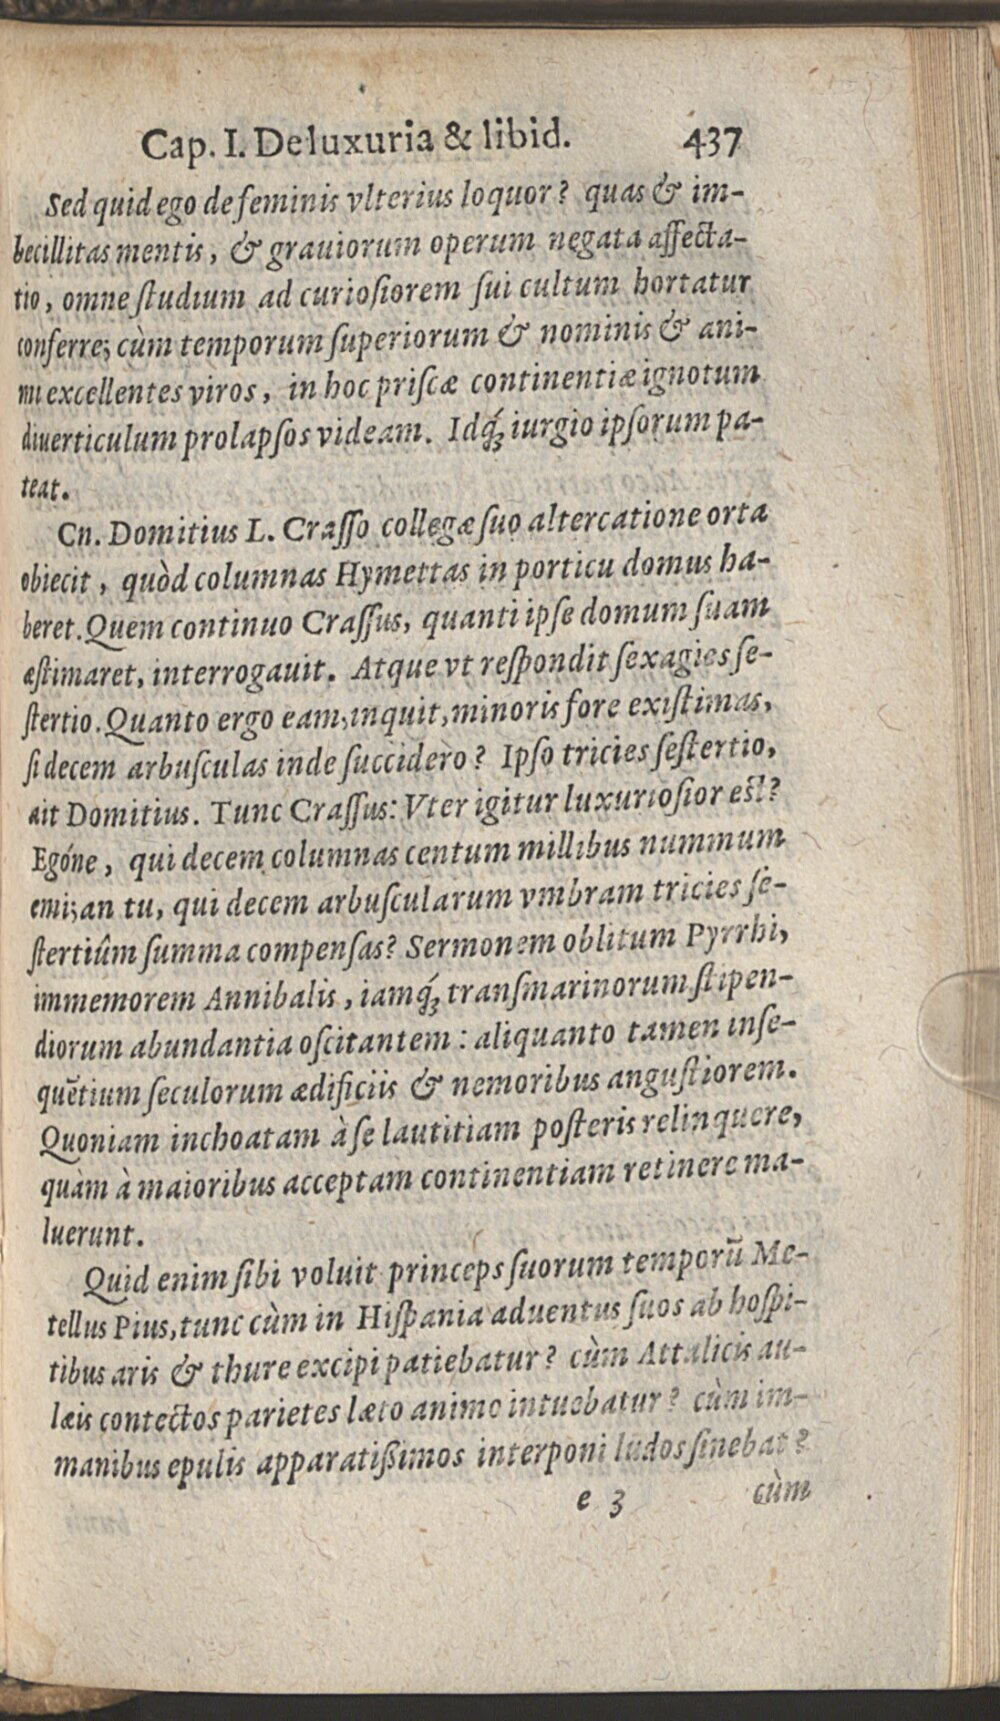 Cap. I. De luxuria & libid. 437
Sed quid ego de feminis vlterius loquor? quas & im-
becillitas mentis, & grauiorum operum negata affecta-
tio, omne ſtudium ad curioſiorem ſui cultum hortatur
conferre; cùm temporum ſuperiorum & nominis & ani-
mi excellentes viros, in hoc priſcæ continentiæ ignotum
diuerticulum prolapſos videam. Idq́ꝫ iurgio ipſorum pa-
teat.
Cn. Domitius L. Craſſo collegæ ſuo altercatione orta
obiecit, quòd columnas Hymettas in porticu domus ha-
beret. Quem continuo Craſſus, quanti ipſe domum ſuam
æſtimaret, interrogauit. Atque vt reſpondit ſexagies ſe-
ſtertio. Quanto ergo eam, inquit, minoris fore exiſtimas,
ſi decem arbuſculas inde ſuccidero? Ipſo tricies ſeſtertio,
ait Domitius. Tunc Craſſus: Vter igitur luxurioſior eſt?
Egóne, qui decem columnas centum millibus nummum
emi; an tu, qui decem arbuſcularum vmbram tricies ſe-
ſtertiûm ſumma compenſas? Sermonem oblitum Pyrrhi,
immemorem Annibalis, iamq́ꝫ tranſmarinorum ſtipen-
diorum abundantia oſcitantem: aliquanto tamen inſe-
quẽtium ſeculorum ædificiis & nemoribus anguſtiorem.
Quoniam inchoatam à ſe lautitiam poſteris relinquere,
quàm à maioribus acceptam continentiam retinere ma-
luerunt.
Quid enim ſibi voluit princeps ſuorum temporũ Me-
tellus Pius, tunc cùm in Hiſpania aduentus ſuos ab hoſpi-
tibus aris & thure excipi patiebatur? cùm Attalicis au-
læis contectos parietes læto animo intuebatur? cùm im-
manibus epulis apparatiſsimos interponi ludos ſinebat?
e 3 cùm